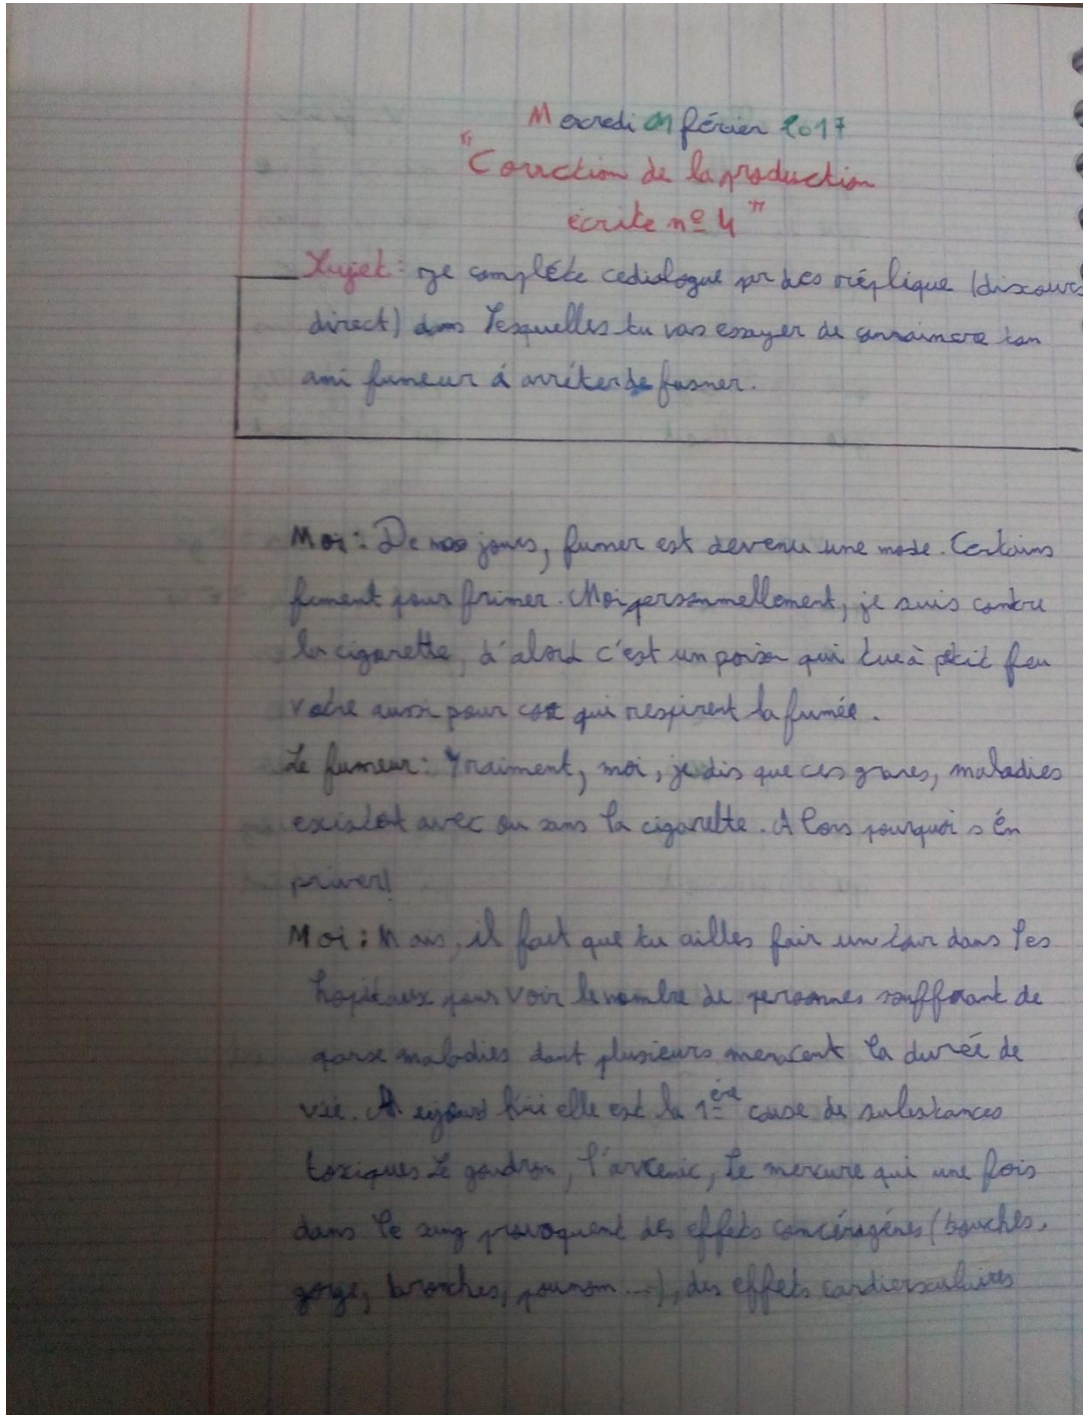 Mercredi 01 février 2017
"Correction de la production
écrite nº 4"
Sujet: je complète ce dialogue par des réplique (discours
direct) dans lesquelles tu vas essayer de convaincre ton
ami fumeur à arrêter de fumer.
Moi: De nos jours, fumer est devenu une mode. Certains
fument pour frimer. Moi personnellement, je suis contre
la cigarette, d'abord c'est un poison qui tue à petit feu
voire aussi pour ceux qui respirent la fumée.
Le fumeur: Vraiment, moi, je dis que ces graves, maladies
existent avec ou sans la cigarette. Alors pourquoi s'én
priver!
Moi: Mais, il faut que tu ailles fair un tour dans les
hopitaux pour voir le nombre de personnes souffrant de
maladies dont plusieurs menacent la durée de
vie. Aujourd'hui elle est la 1ère cause de substances
toxiques Le goudron, l'arcenic, Le mercure qui une fois
dans le sang provoquent des effets cancérogénes (bouches,
gorge, bronches, poumon ...), des effets